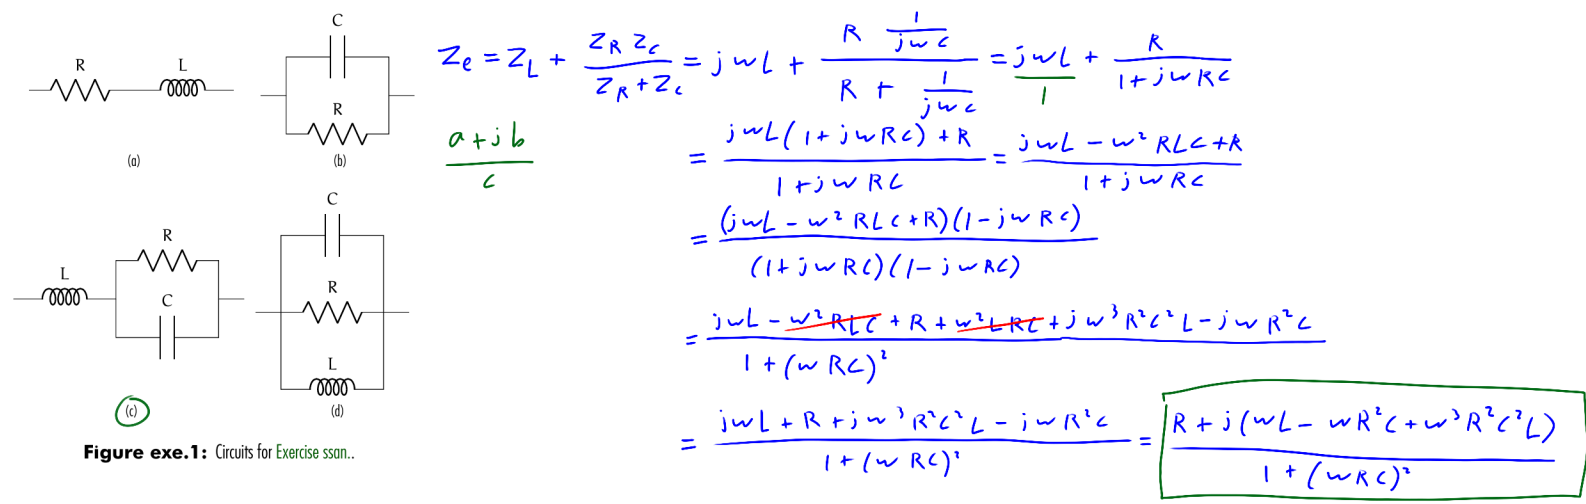 R L
C
R
(a) (b)
R
L
C
C
R
L
(c) (d)
Figure exe.1: Circuits for Exercise ssan..
Z_e = Z_L + \frac{Z_R Z_C}{Z_R + Z_C} = jωL + \frac{R \frac{1}{jωC}}{R + \frac{1}{jωC}} = \frac{jωL}{1} + \frac{R}{1 + jωRC}
\frac{a + jb}{c}
= \frac{jωL(1 + jωRC) + R}{1 + jωRC} = \frac{jωL - ω²RLC + R}{1 + jωRC}
= \frac{(jωL - ω²RLC + R)(1 - jωRC)}{(1 + jωRC)(1 - jωRC)}
= \frac{jωL - ω²RLC + R + ω²LRC + jω³R²C²L - jωR²C}{1 + (ωRC)²}
= \frac{jωL + R + jω³R²C²L - jωR²C}{1 + (ωRC)²} = \frac{R + j(ωL - ωR²C + ω³R²C²L)}{1 + (ωRC)²}